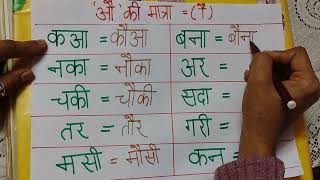 'औ' की मात्रा = (ौ)
कआ = कौआ बना = बौना
नका = नौका अर =
चकी = चौकी सदा =
तर = तौर गरी =
मसी = मौसी कन =